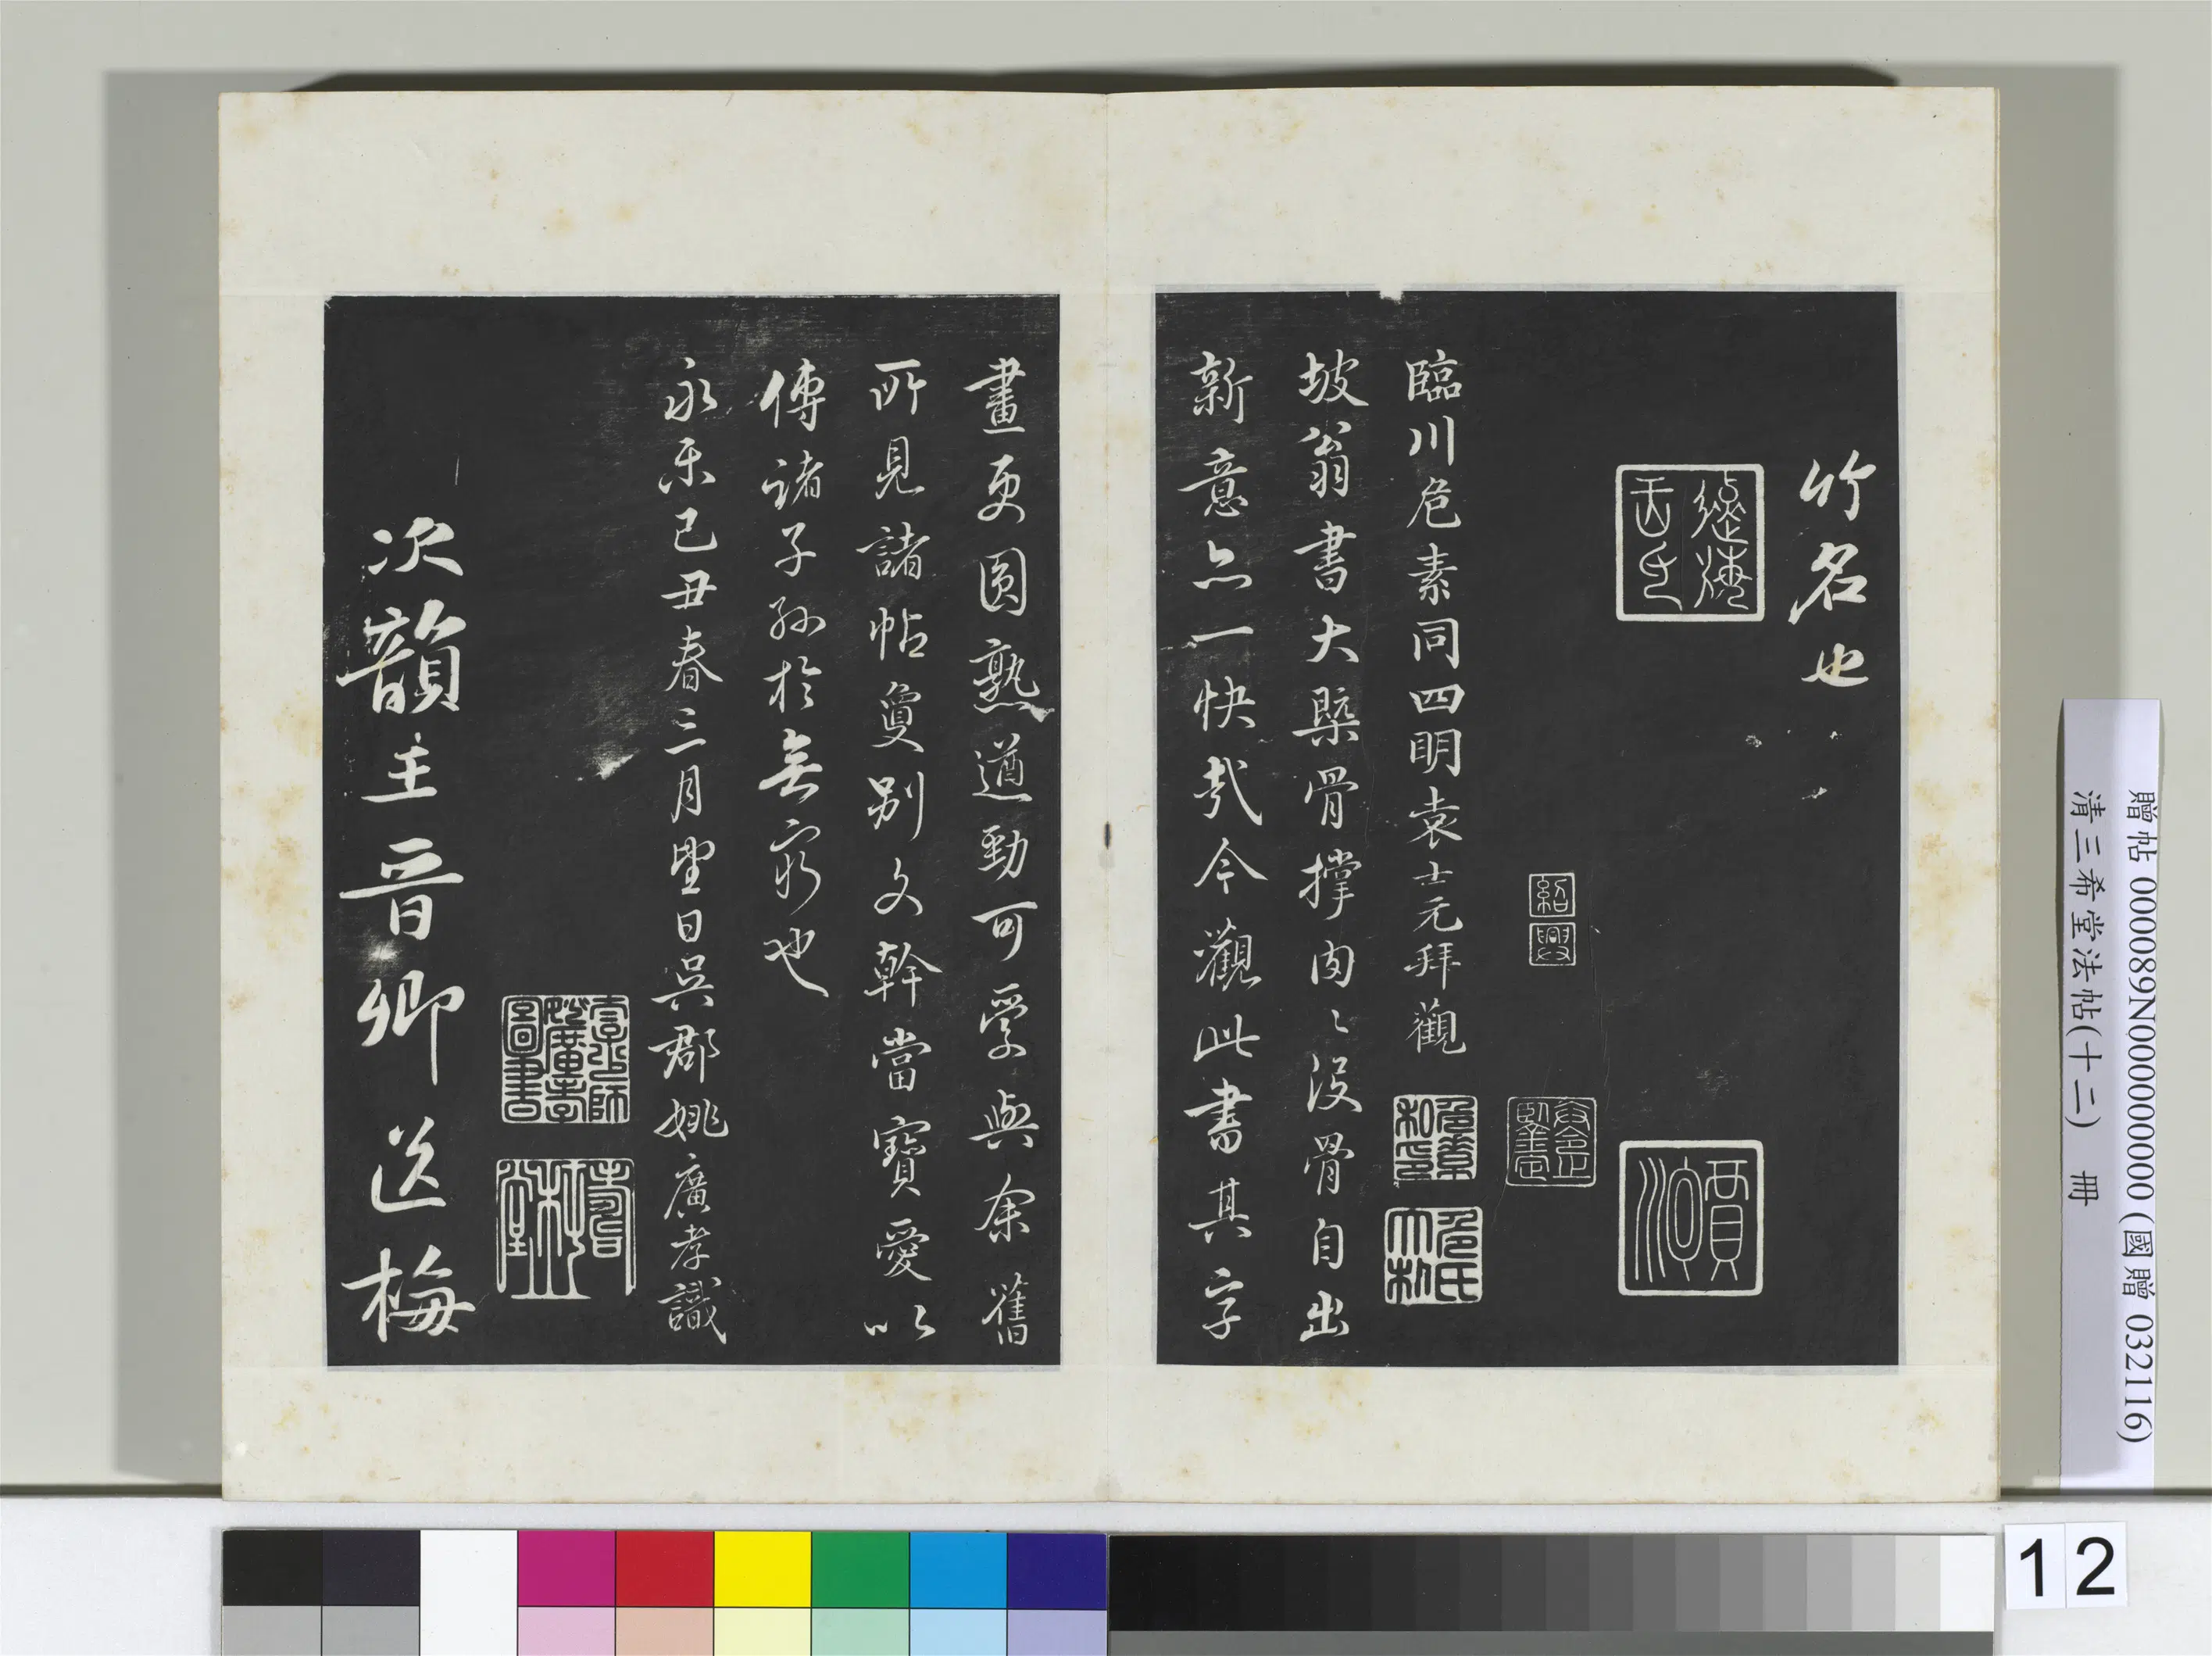 竹名也
紹興
臨川危素同四明袁士元拜觀
坡翁書大槩骨撑肉〻没骨自出
新意亦一快哉今觀此書其字
畫更圓熟遒勁可學與余舊
所見諸帖敻别文幹當寳愛以
傳諸子孫於無窮也
永樂己丑春三月望日吳郡姚廣孝識
次韻王晉卿送梅
贈帖 000089N000000000 (國贈 032116)
清三希堂法帖(十二) 冊
12